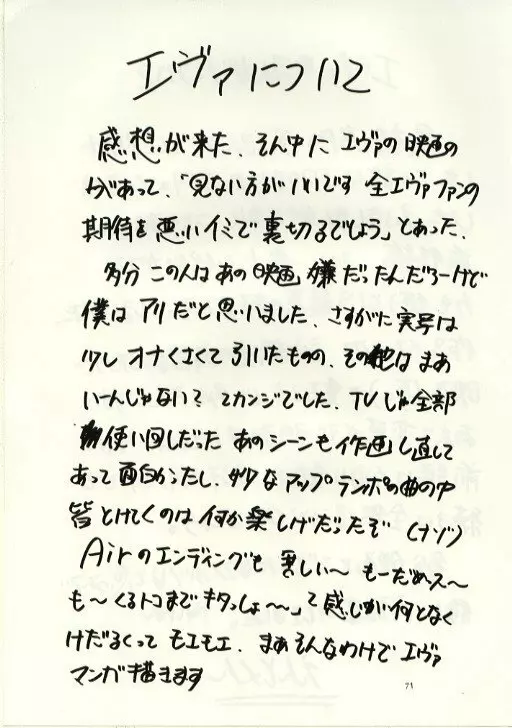 エヴァについて
感想が来た、そん中に エヴァの映画の
があって、「見ない方がいいです 全エヴァファンの
期待を悪いイミで裏切るでしょう」とあった、
多分 この人はあの映画 嫌だったんだろーけど
僕は アリだと思いました、さすがに実写は
少し オナくさくて 引いたものの、その他は まあ
いーんじゃない?て カンジでした、TVじゃ全部
使い回しだった あのシーンも 作画し直して
あって 面白かったし、妙な アップテンポの曲の中
皆とけてくのは 何か楽しげだったぞ (ナゾ)
Airのエンディングも 美しい〜 もーだめっス〜
も〜くるトコまでキタっしょ〜」て感じが何となく
けだるくって モエモエ、まあそんなわけで エヴァ
マンガ描きます
71